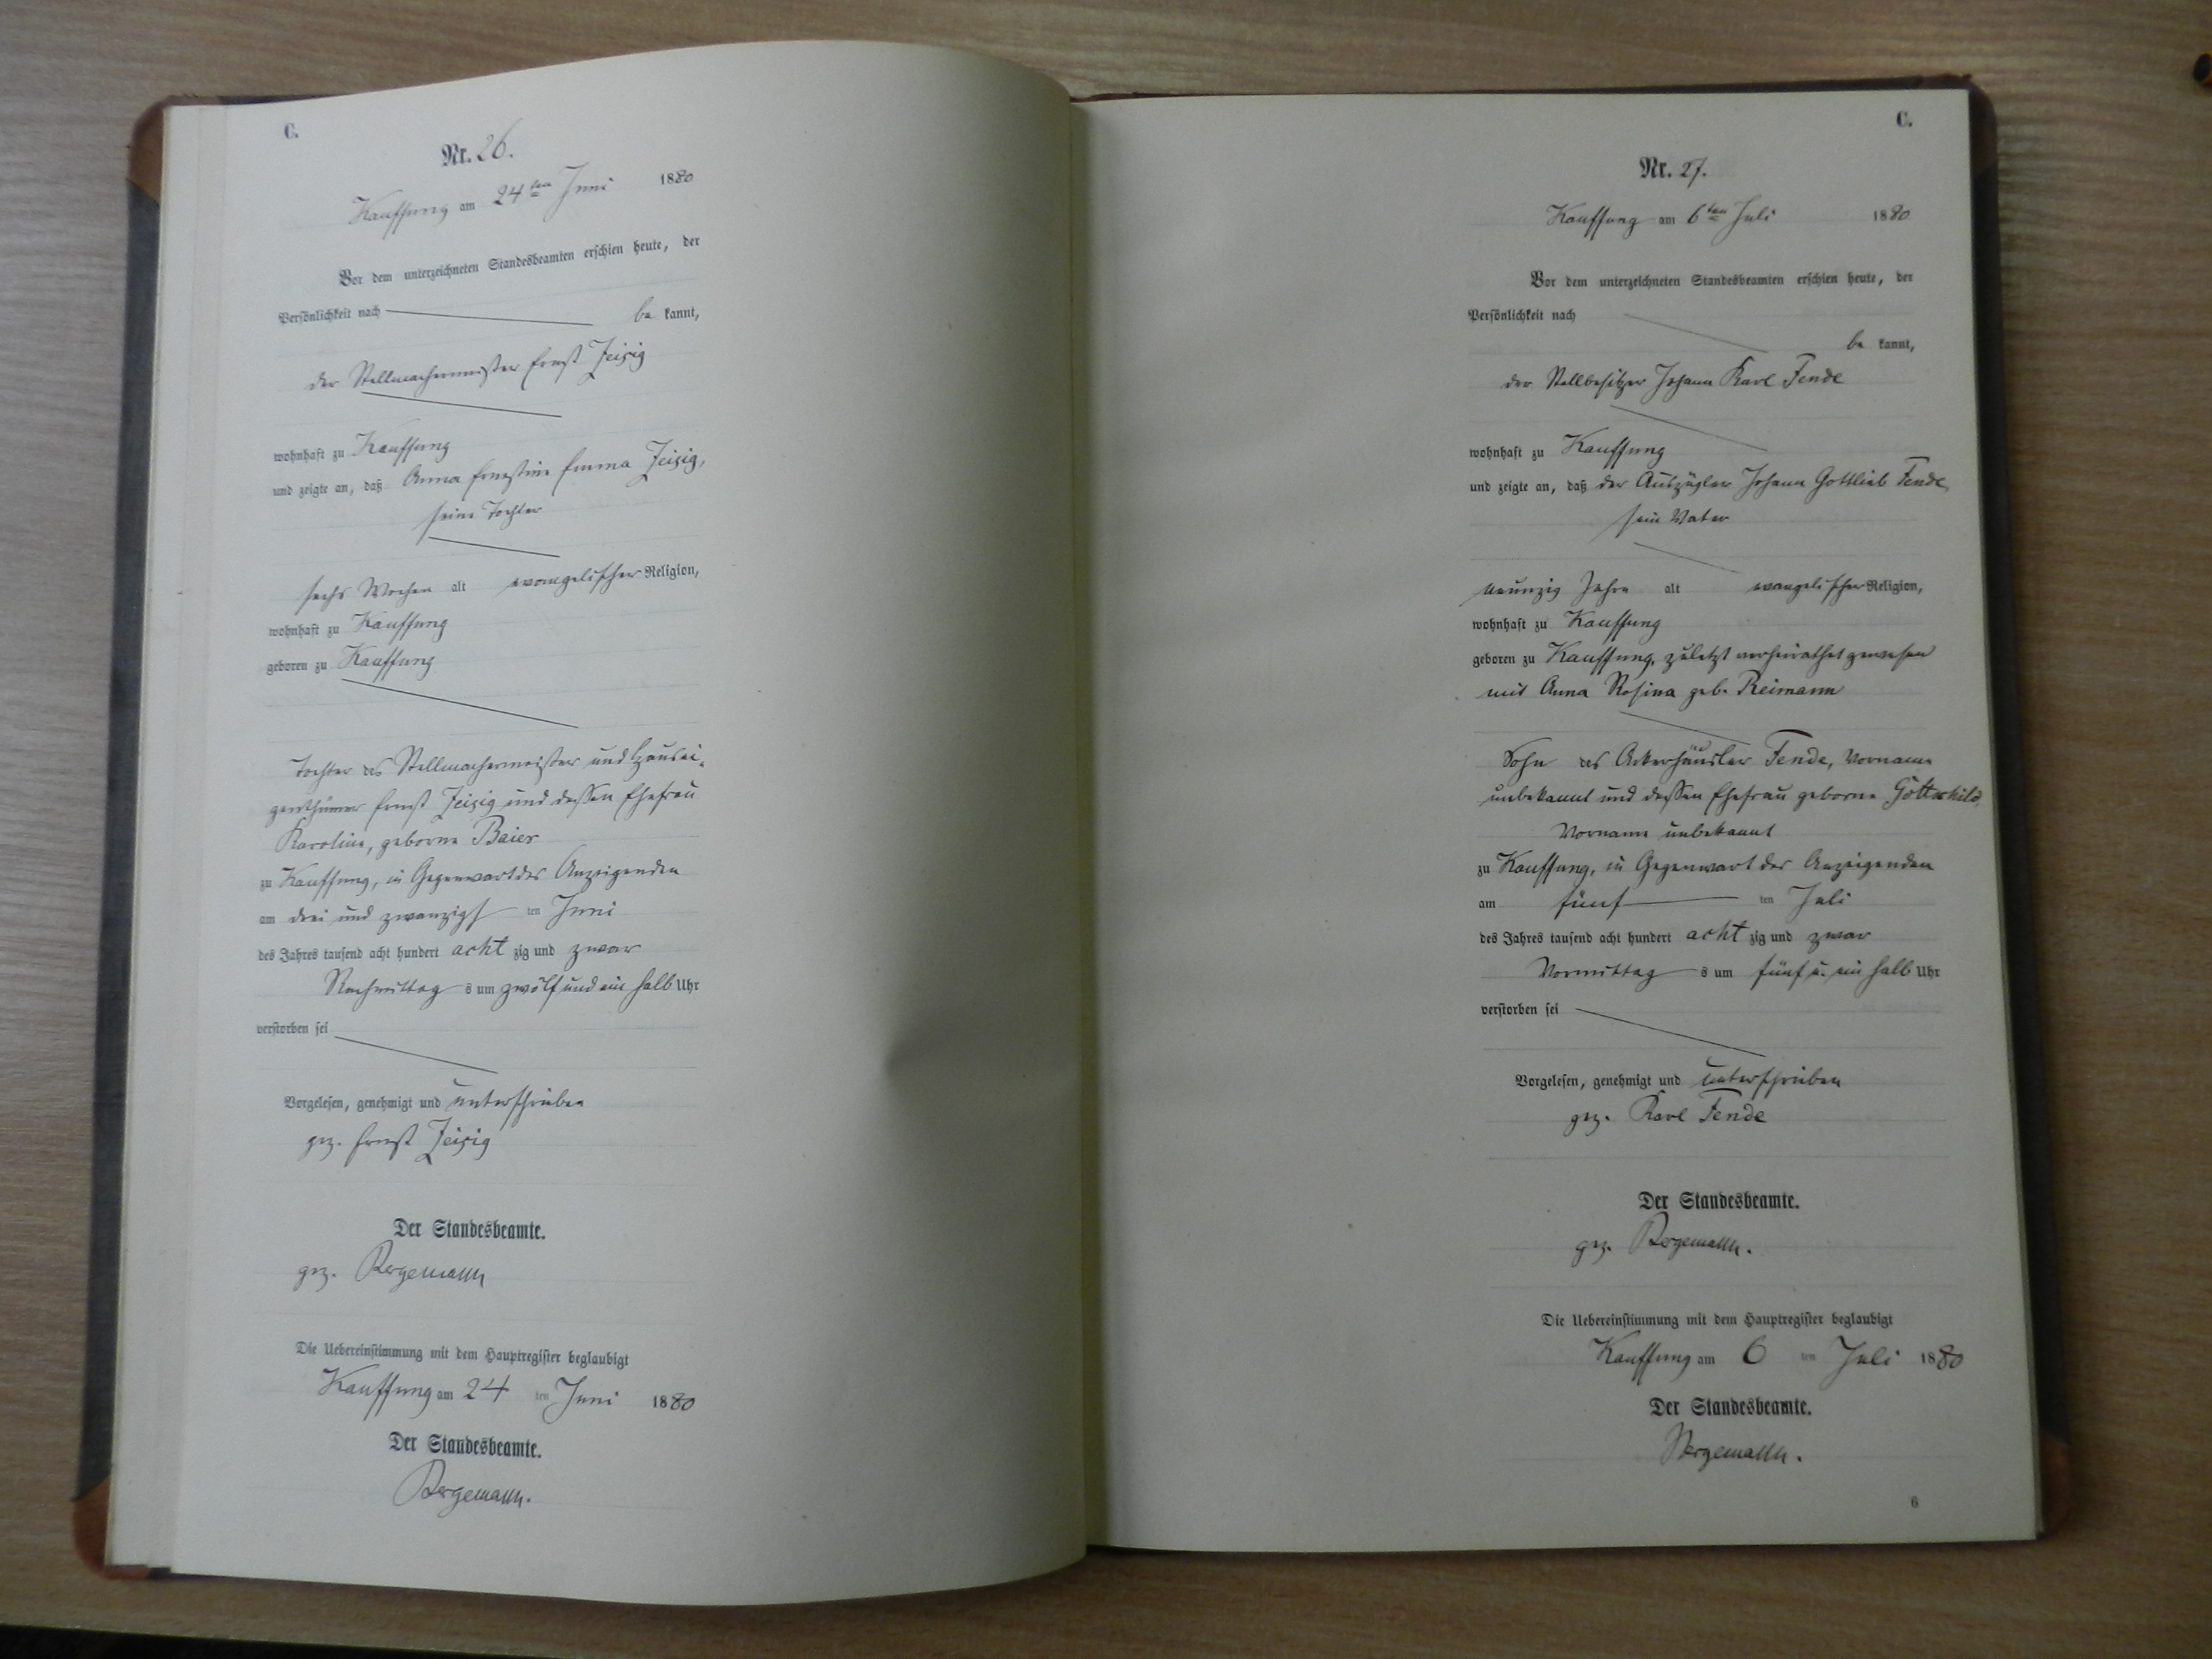 C.
Nr. 26.
Kauffung am 24ten Juni 1880
Vor dem unterzeichneten Standesbeamten erschien heute, der
Persönlichkeit nach be kannt,
der Stellmachermeister Ernst Zeisig
wohnhaft zu Kauffung
und zeigte an, daß Anna Ernestine Emma Zeisig,
seine Tochter
sechs Wochen alt evangelischer Religion,
wohnhaft zu Kauffung
geboren zu Kauffung
Tochter des Stellmachermeister und Hausei-
genthümer Ernst Zeisig und dessen Ehefrau
Karoline, geborne Baier
zu Kauffung, in Gegenwart des Anzeigenden
am drei und zwanzigst ten Juni
des Jahres tausend acht hundert acht zig und zwar
Nachmittag s um zwölf und ein halb Uhr
verstorben sei
Vorgelesen, genehmigt und unterschrieben
gez. Ernst Zeisig
Der Standesbeamte.
gez. Bergemann
Die Uebereinstimmung mit dem Hauptregister beglaubigt
Kauffung am 24 ten Juni 1880
Der Standesbeamte.
Bergemann.
C.
Nr. 27.
Kauffung am 6ten Juli 1880
Vor dem unterzeichneten Standesbeamten erschien heute, der
Persönlichkeit nach
be kannt,
der Stellbesitzer Johann Karl Fende
wohnhaft zu Kauffung
und zeigte an, daß der Auszügler Johann Gottlieb Fende,
sein Vater
neunzig Jahre alt evangelischer Religion,
wohnhaft zu Kauffung
geboren zu Kauffung, zuletzt verheirathet gewesen
mit Anna Rosina geb. Reimann
Sohn des Ackerhäusler Fende, Vorname
unbekannt und dessen Ehefrau geborne Gottschild,
Vorname unbekannt
zu Kauffung, in Gegenwart des Anzeigenden
am fünf ten Juli
des Jahres tausend acht hundert acht zig und zwar
Vormittag s um fünf u. ein halb Uhr
verstorben sei
Vorgelesen, genehmigt und unterschrieben
gez. Karl Fende
Der Standesbeamte.
gez. Bergemann.
Die Uebereinstimmung mit dem Hauptregister beglaubigt
Kauffung am 6 ten Juli 1880
Der Standesbeamte.
Bergemann.
6